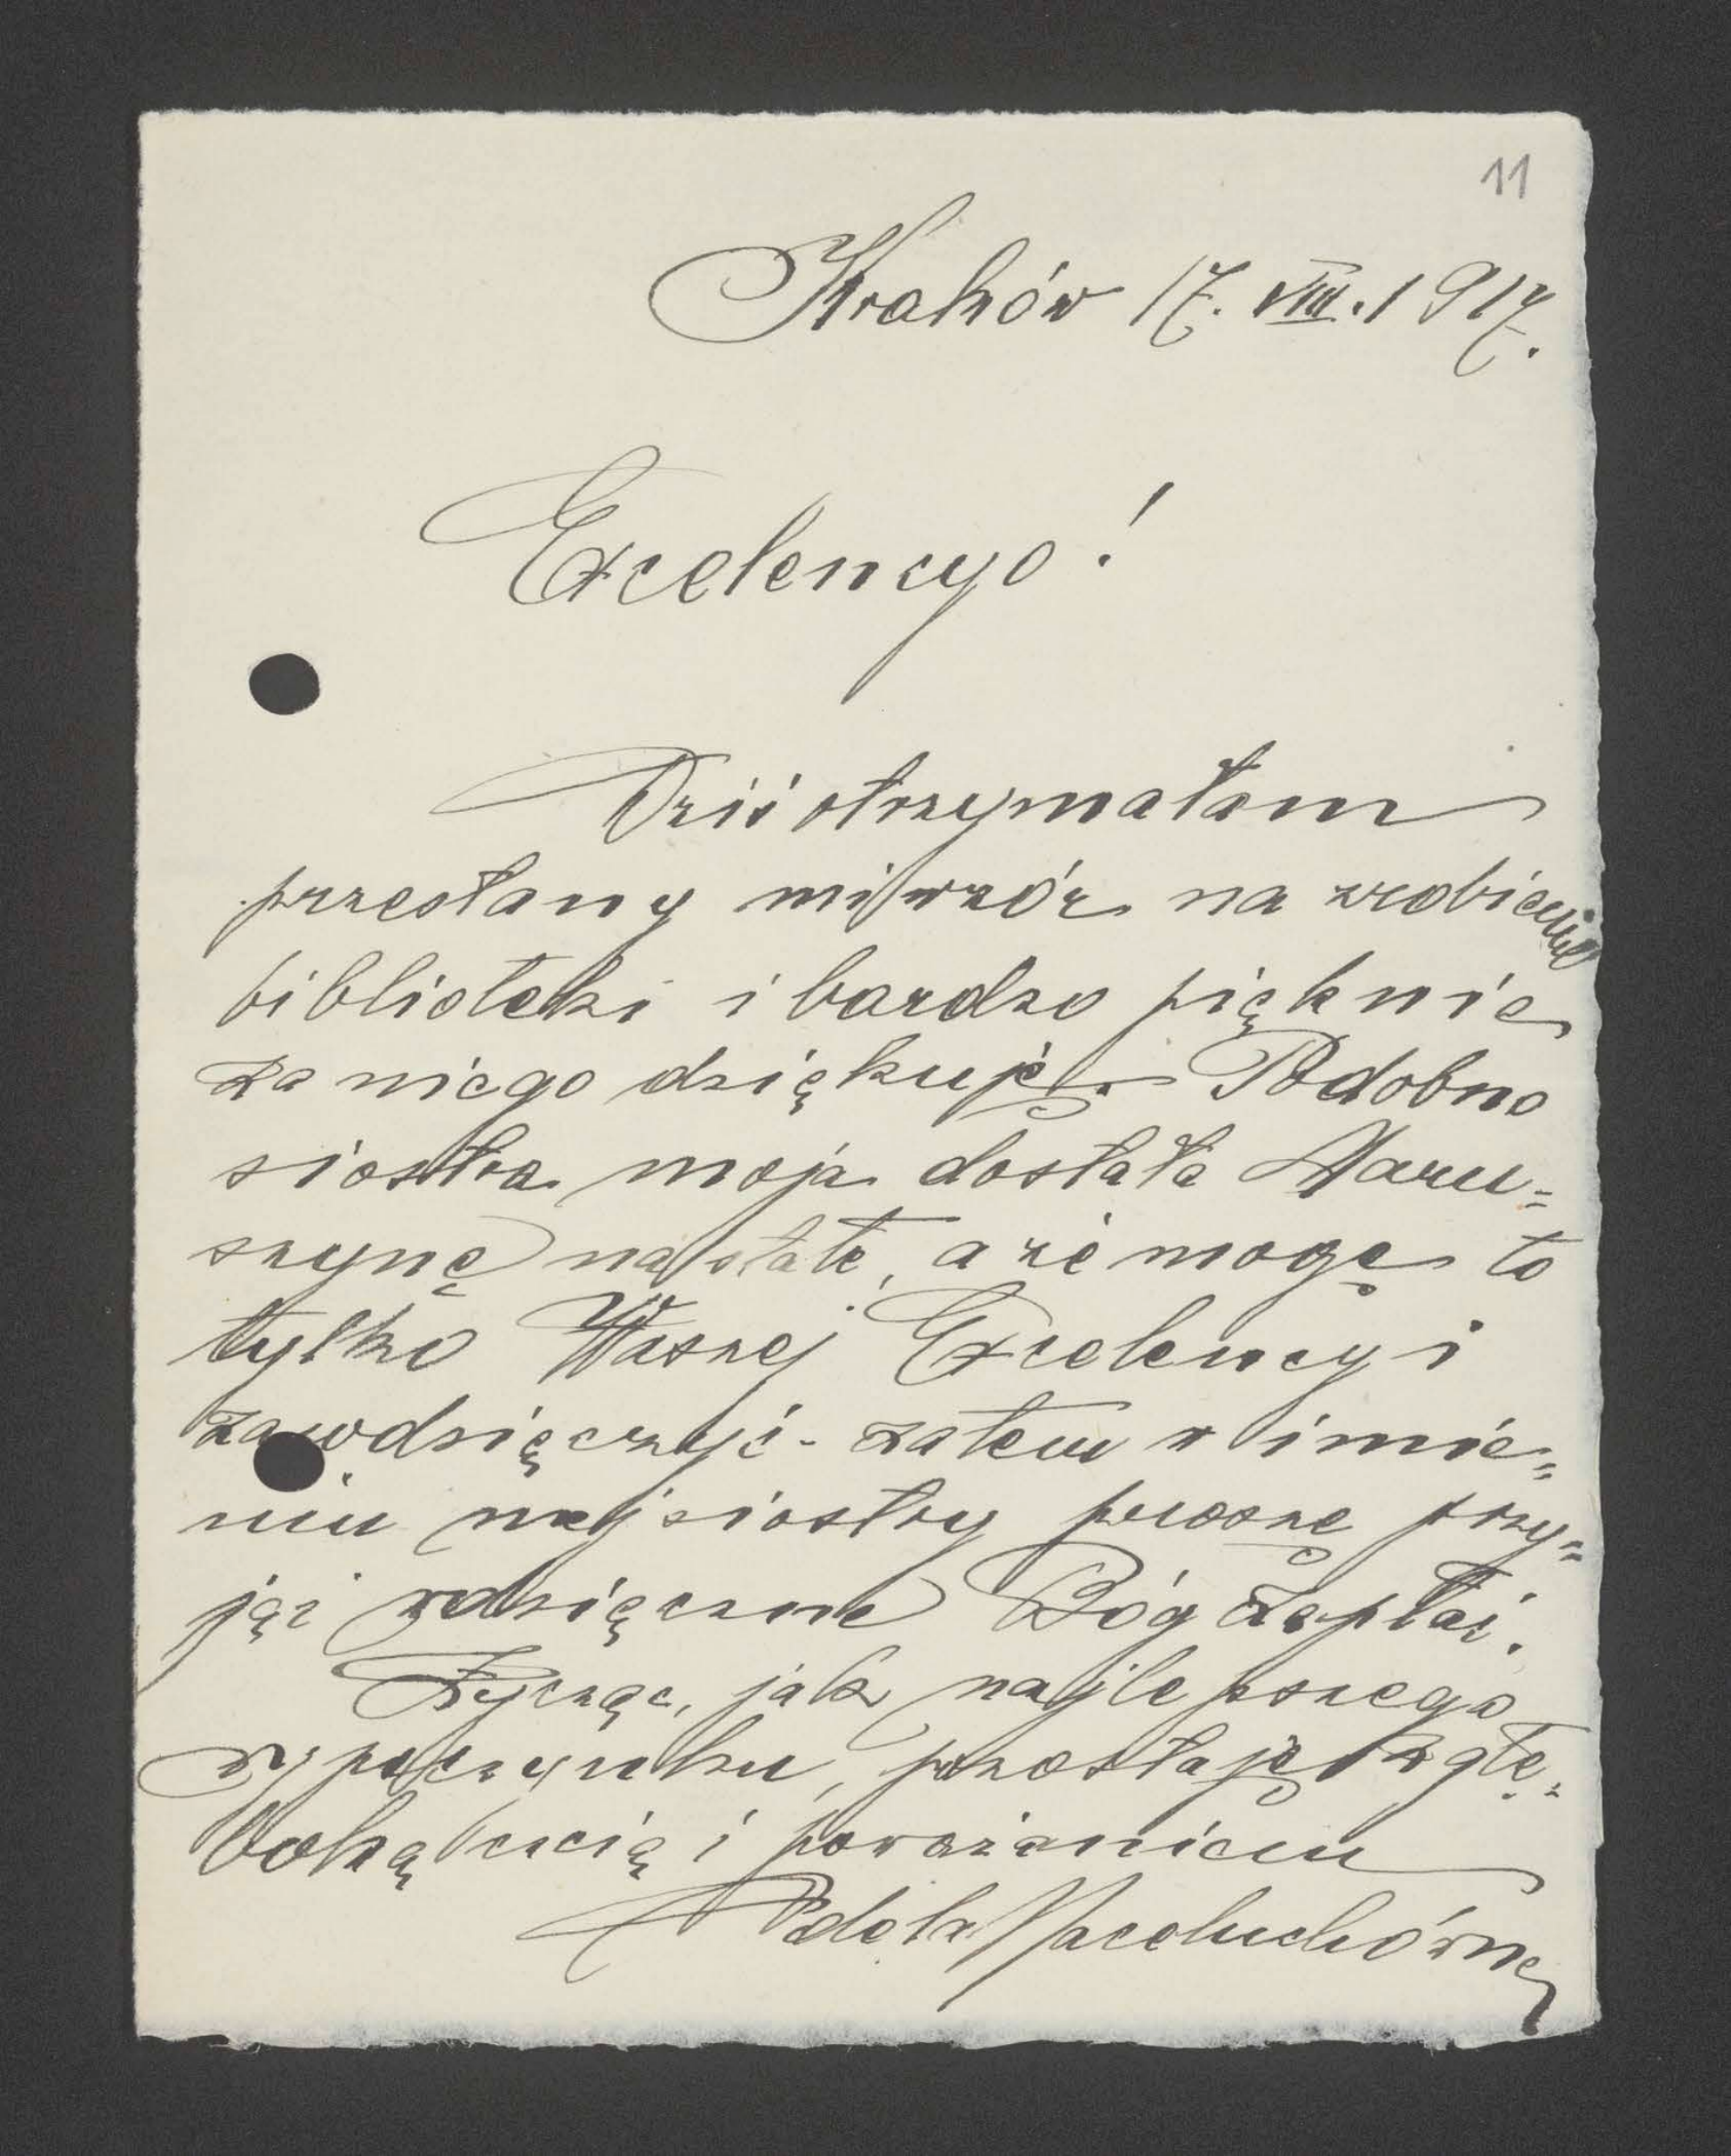 11
Kraków 17. VIII. 1917.
Excelencyo!
Dziś otrzymałam
przesłany mi wzór na zrobienie
biblioteki i bardzo pięknie
za niego dziękuję. Podobno
siostra moja dostała Maru=
szynę na stałe, a że mogę to
tylko Waszej Excelencyi
zawdzięczyć - zatem w imie=
niu mej siostry proszę przy=
jąć wdzięczne Bóg zapłać.
Życząc, jak najlepszego
wypoczynku, pozostaję z głę=
boką czcią i poważaniem
Adela